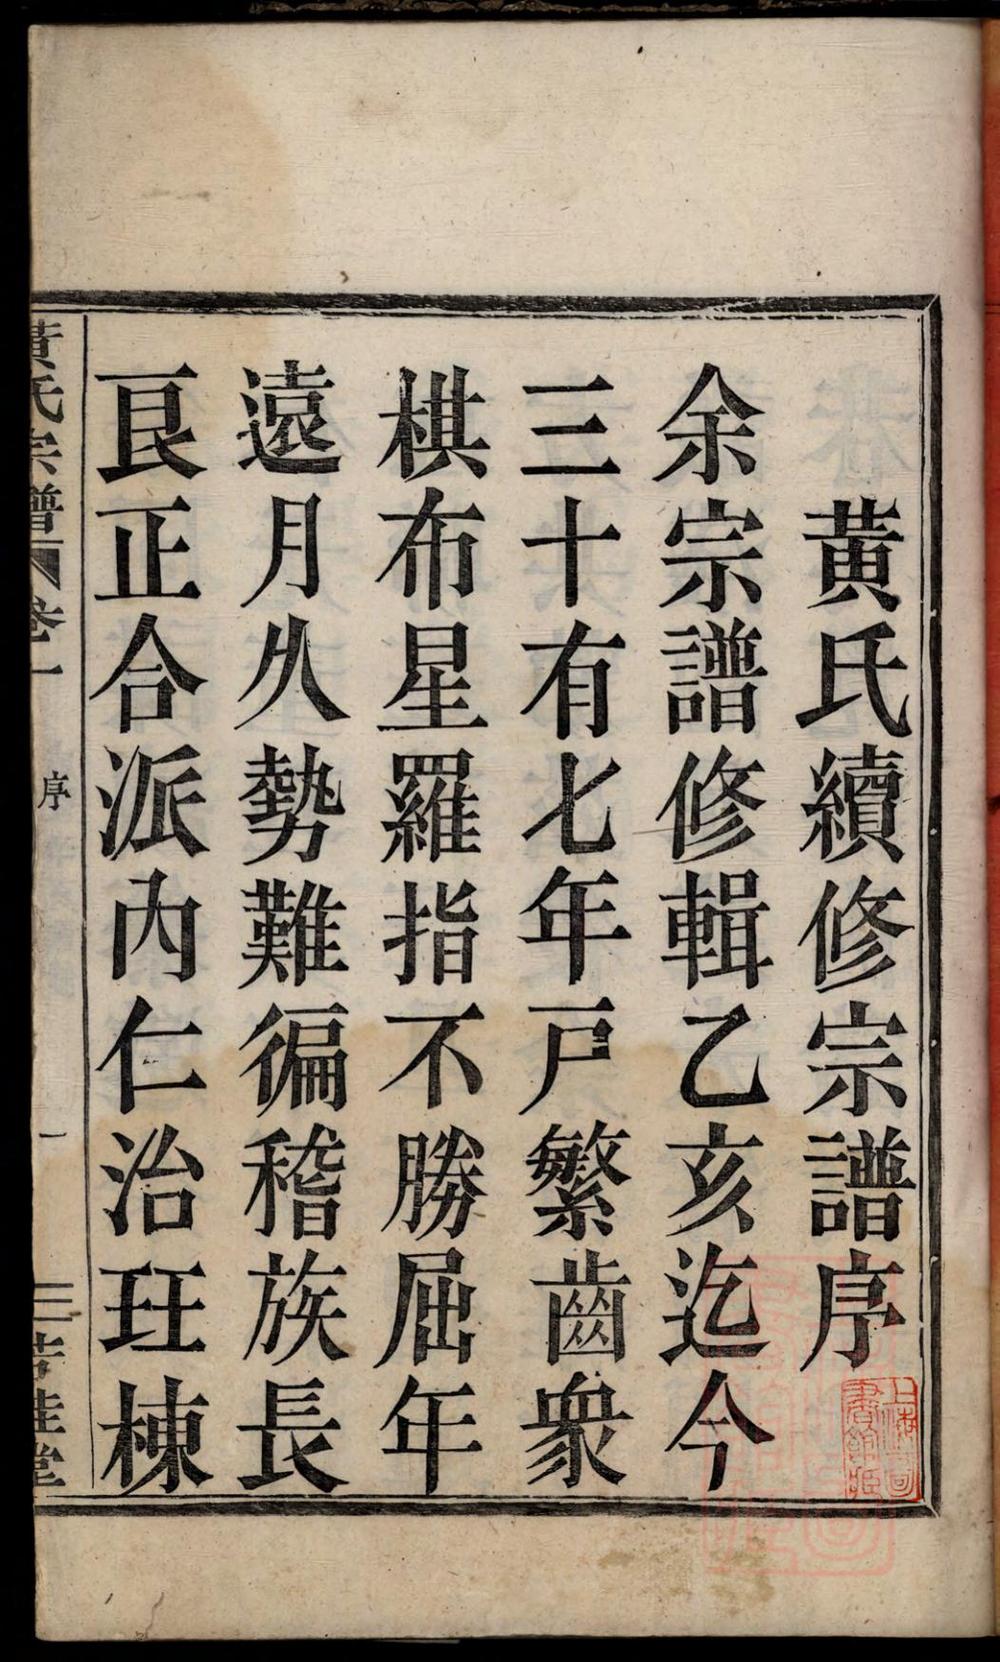 黃氏續修宗譜序
余宗譜修輯乙亥迄今
三十有七年戸繁齒衆
棋布星羅指不勝屈年
遠月久勢難徧稽族長
艮正合派內仁治玨棟
黃氏宗譜 卷一 序 一 桂堂